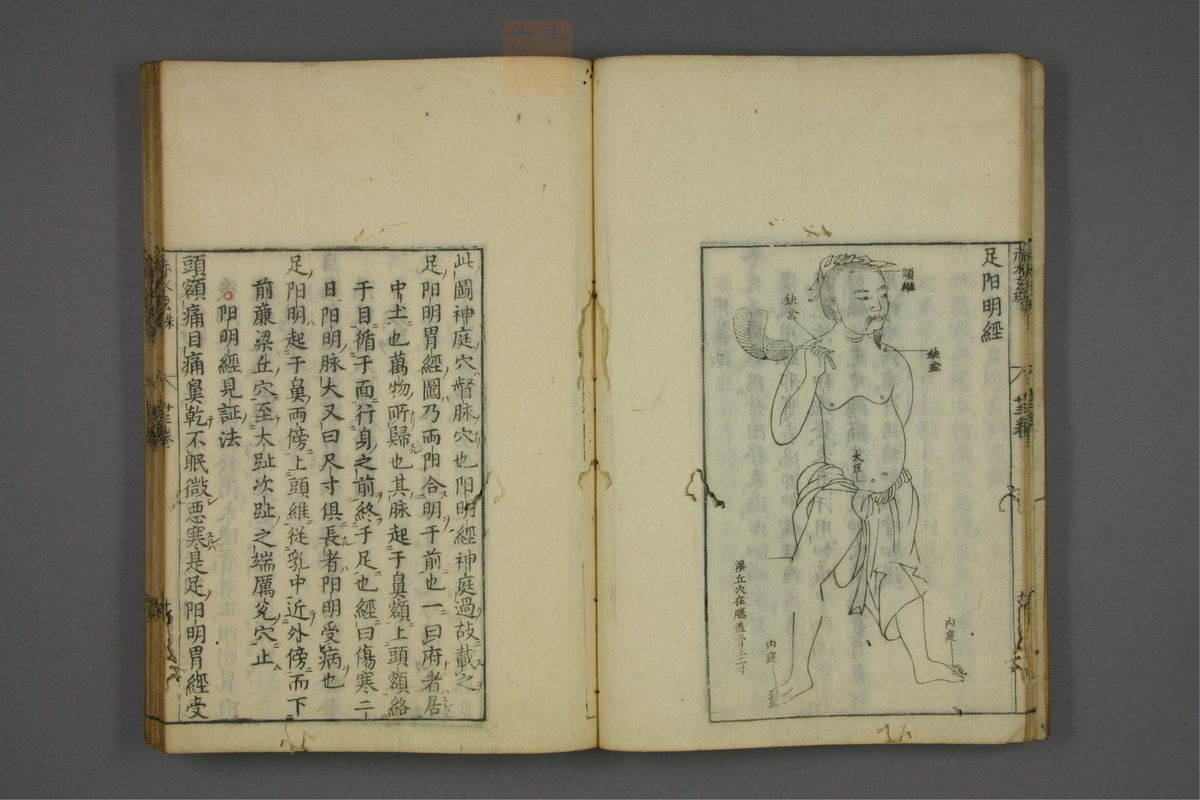 足阳明經
頭維
缺盆
缺盆
大巨
梁丘穴在膝蓋骨上二寸
内庭
内庭
此圖神庭穴督脉穴也阳明經神庭過故載之
足阳明胃經圖乃两阳合明于前也一曰府者居
中土也萬物所歸也其脉起于鼻額上頭額絡
于目循于面行身之前終于足也經曰傷寒二
日阳明脉大又曰尺寸俱長者阳明受病也
足阳明起于鼻两傍上頭維從乳中近外傍而下
前廉梁丘穴至大趾次趾之端厲兊穴止
阳明經見証法
頭額痛目痛鼻乾不眠微悪寒是足阳明胃經受
赤水玄珠